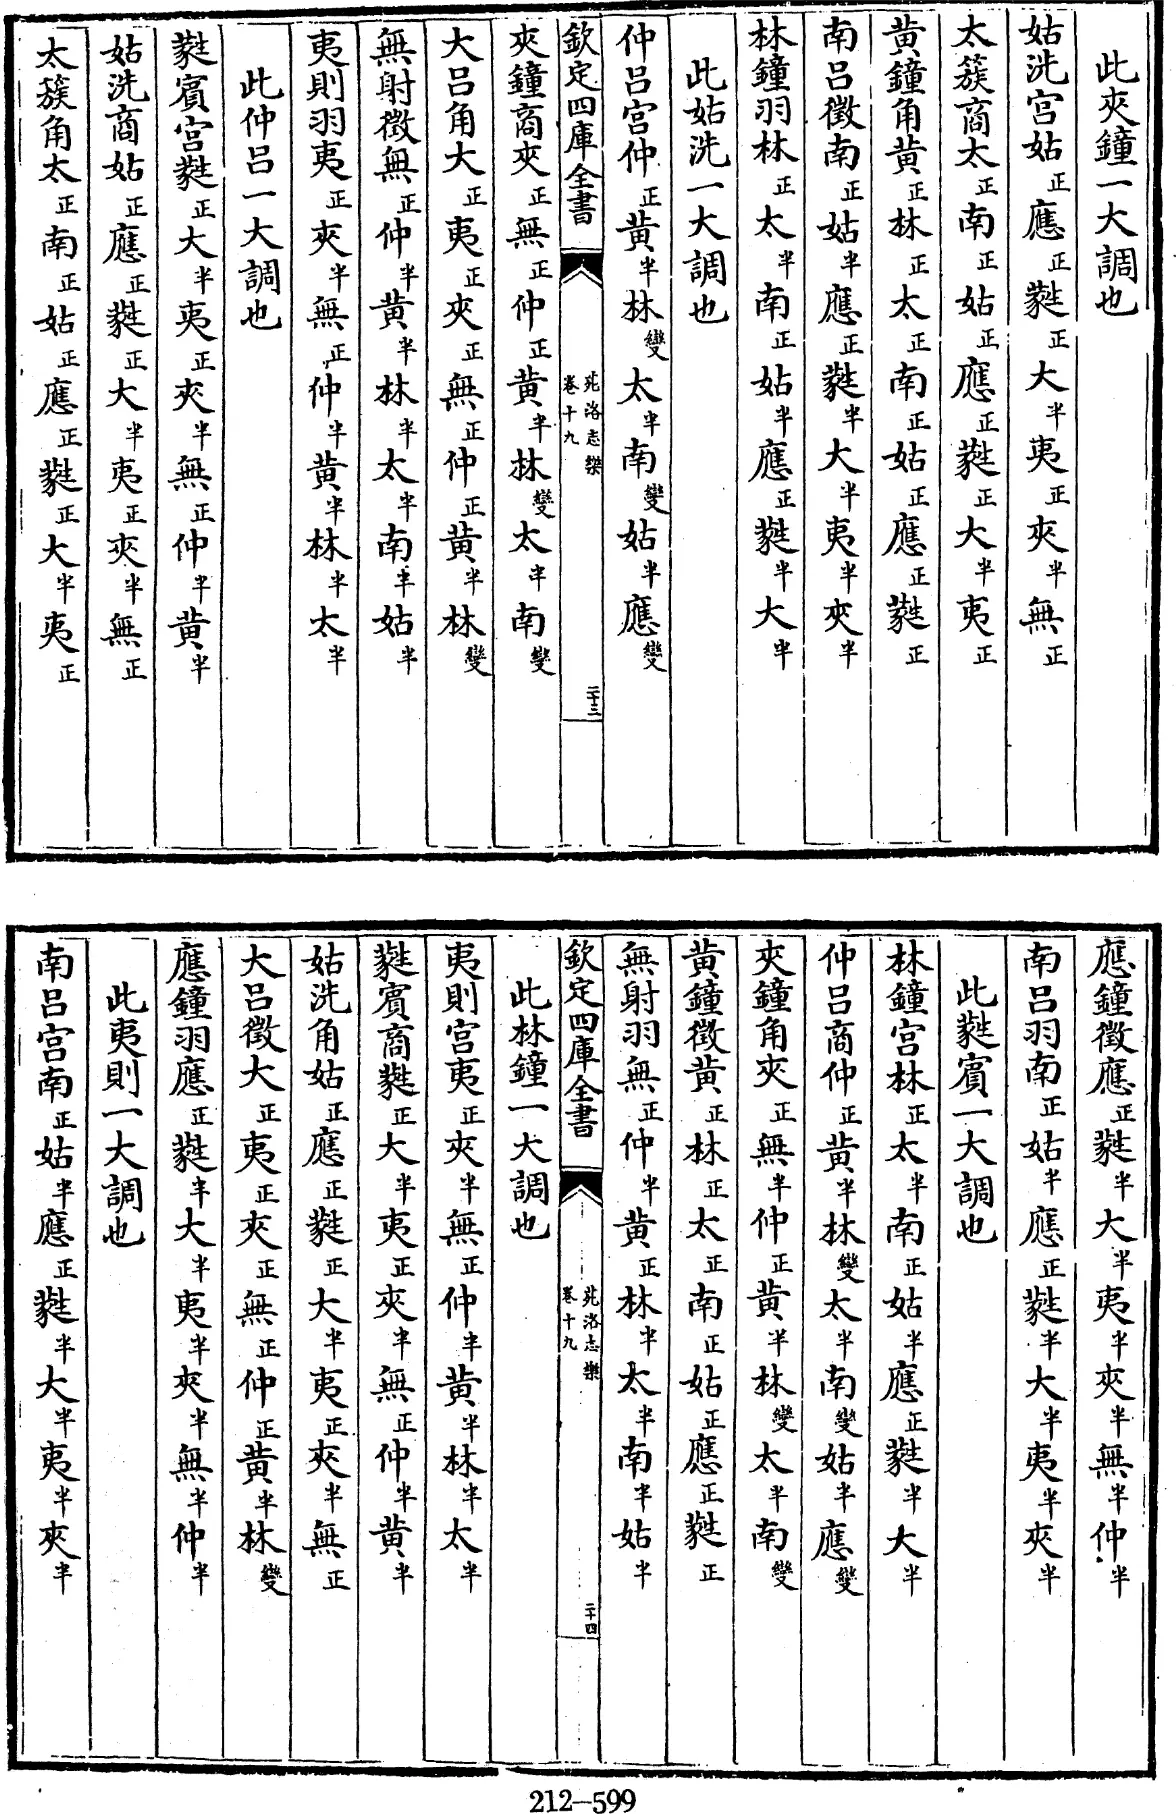 此夾鐘一大調也
姑洗宮姑正應正蕤正大半夷正夾半無正
太簇商太正南正姑正應正蕤正大半夷正
黃鐘角黃正林正太正南正姑正應正蕤正
南呂徵南正姑半應正蕤半大半夷半夾半
林鐘羽林正太半南正姑半應正蕤半大半
此姑洗一大調也
仲呂宮仲正黃半林變太半南變姑半應變
欽定四庫全書
苑洛志樂
卷十九
二十三
夾鐘商夾正無正仲正黃半林變太半南變
大呂角大正夷正夾正無正仲正黃半林變
無射徵無正仲半黃半林半太半南半姑半
夷則羽夷正夾半無正仲半黃半林半太半
此仲呂一大調也
蕤賓宮蕤正大半夷正夾半無正仲半黃半
姑洗商姑正應正蕤正大半夷正夾半無正
太簇角太正南正姑正應正蕤正大半夷正
應鐘徵應正蕤半大半夷半夾半無半仲半
南呂羽南正姑半應正蕤半大半夷半夾半
此蕤賓一大調也
林鐘宮林正太半南正姑半應正蕤半大半
仲呂商仲正黃半林變太半南變姑半應變
夾鐘角夾正無半仲正黃半林變太半南變
黃鐘徵黃正林正太正南正姑正應正蕤正
無射羽無正仲半黃正林半太半南半姑半
欽定四庫全書
苑洛志樂
卷十九
二十四
此林鐘一大調也
夷則宮夷正夾半無正仲半黃半林半太半
蕤賓商蕤正大半夷正夾半無正仲半黃半
姑洗角姑正應正蕤正大半夷正夾半無正
大呂徵大正夷正夾正無正仲正黃半林變
應鐘羽應正蕤半大半夷半夾半無半仲半
此夷則一大調也
南呂宮南正姑半應正蕤半大半夷半夾半
212-599